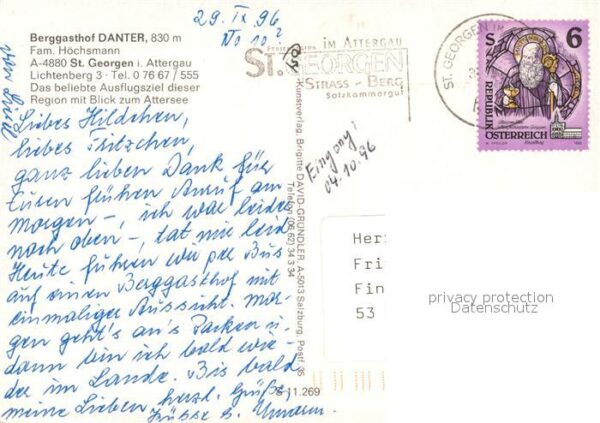 Berggasthof DANTER, 830 m
Fam. Höchsmann
A-4880 St. Georgen i. Attergau
Lichtenberg 3 · Tel. 0 76 67 / 555
Das beliebte Ausflugsziel dieser
Region mit Blick zum Attersee
29. IX 96
IM ATTERGAU
ST. GEORGEN
STRASS - BERG
Salzkammergut
ST. GEORGEN IM
S 6
REPUBLIK
ÖSTERREICH
Liebes Hildchen,
liebes Fritzchen,
ganz lieben Dank für
Euren frühen Anruf am
Morgen –, ich war leider
noch oben –, tat mir leid
Heute führen wir per Bus
auf einen Berggasthof mit
einmaliger Aussicht. Mor-
gen geht's an's Packen u.
dann bin ich bald wie-
der im Lande. Bis bald
meine Lieben herzl. Grüße,
Kunstverlag, Brigitte DAVID-GRÜNDLER, A-5013 Salzburg, Postf. 35
Telefon (06 62) 34 3 34
Eingang:
04.10.96
Her
Fri
Fin
53
privacy protection
Datenschutz
11.269